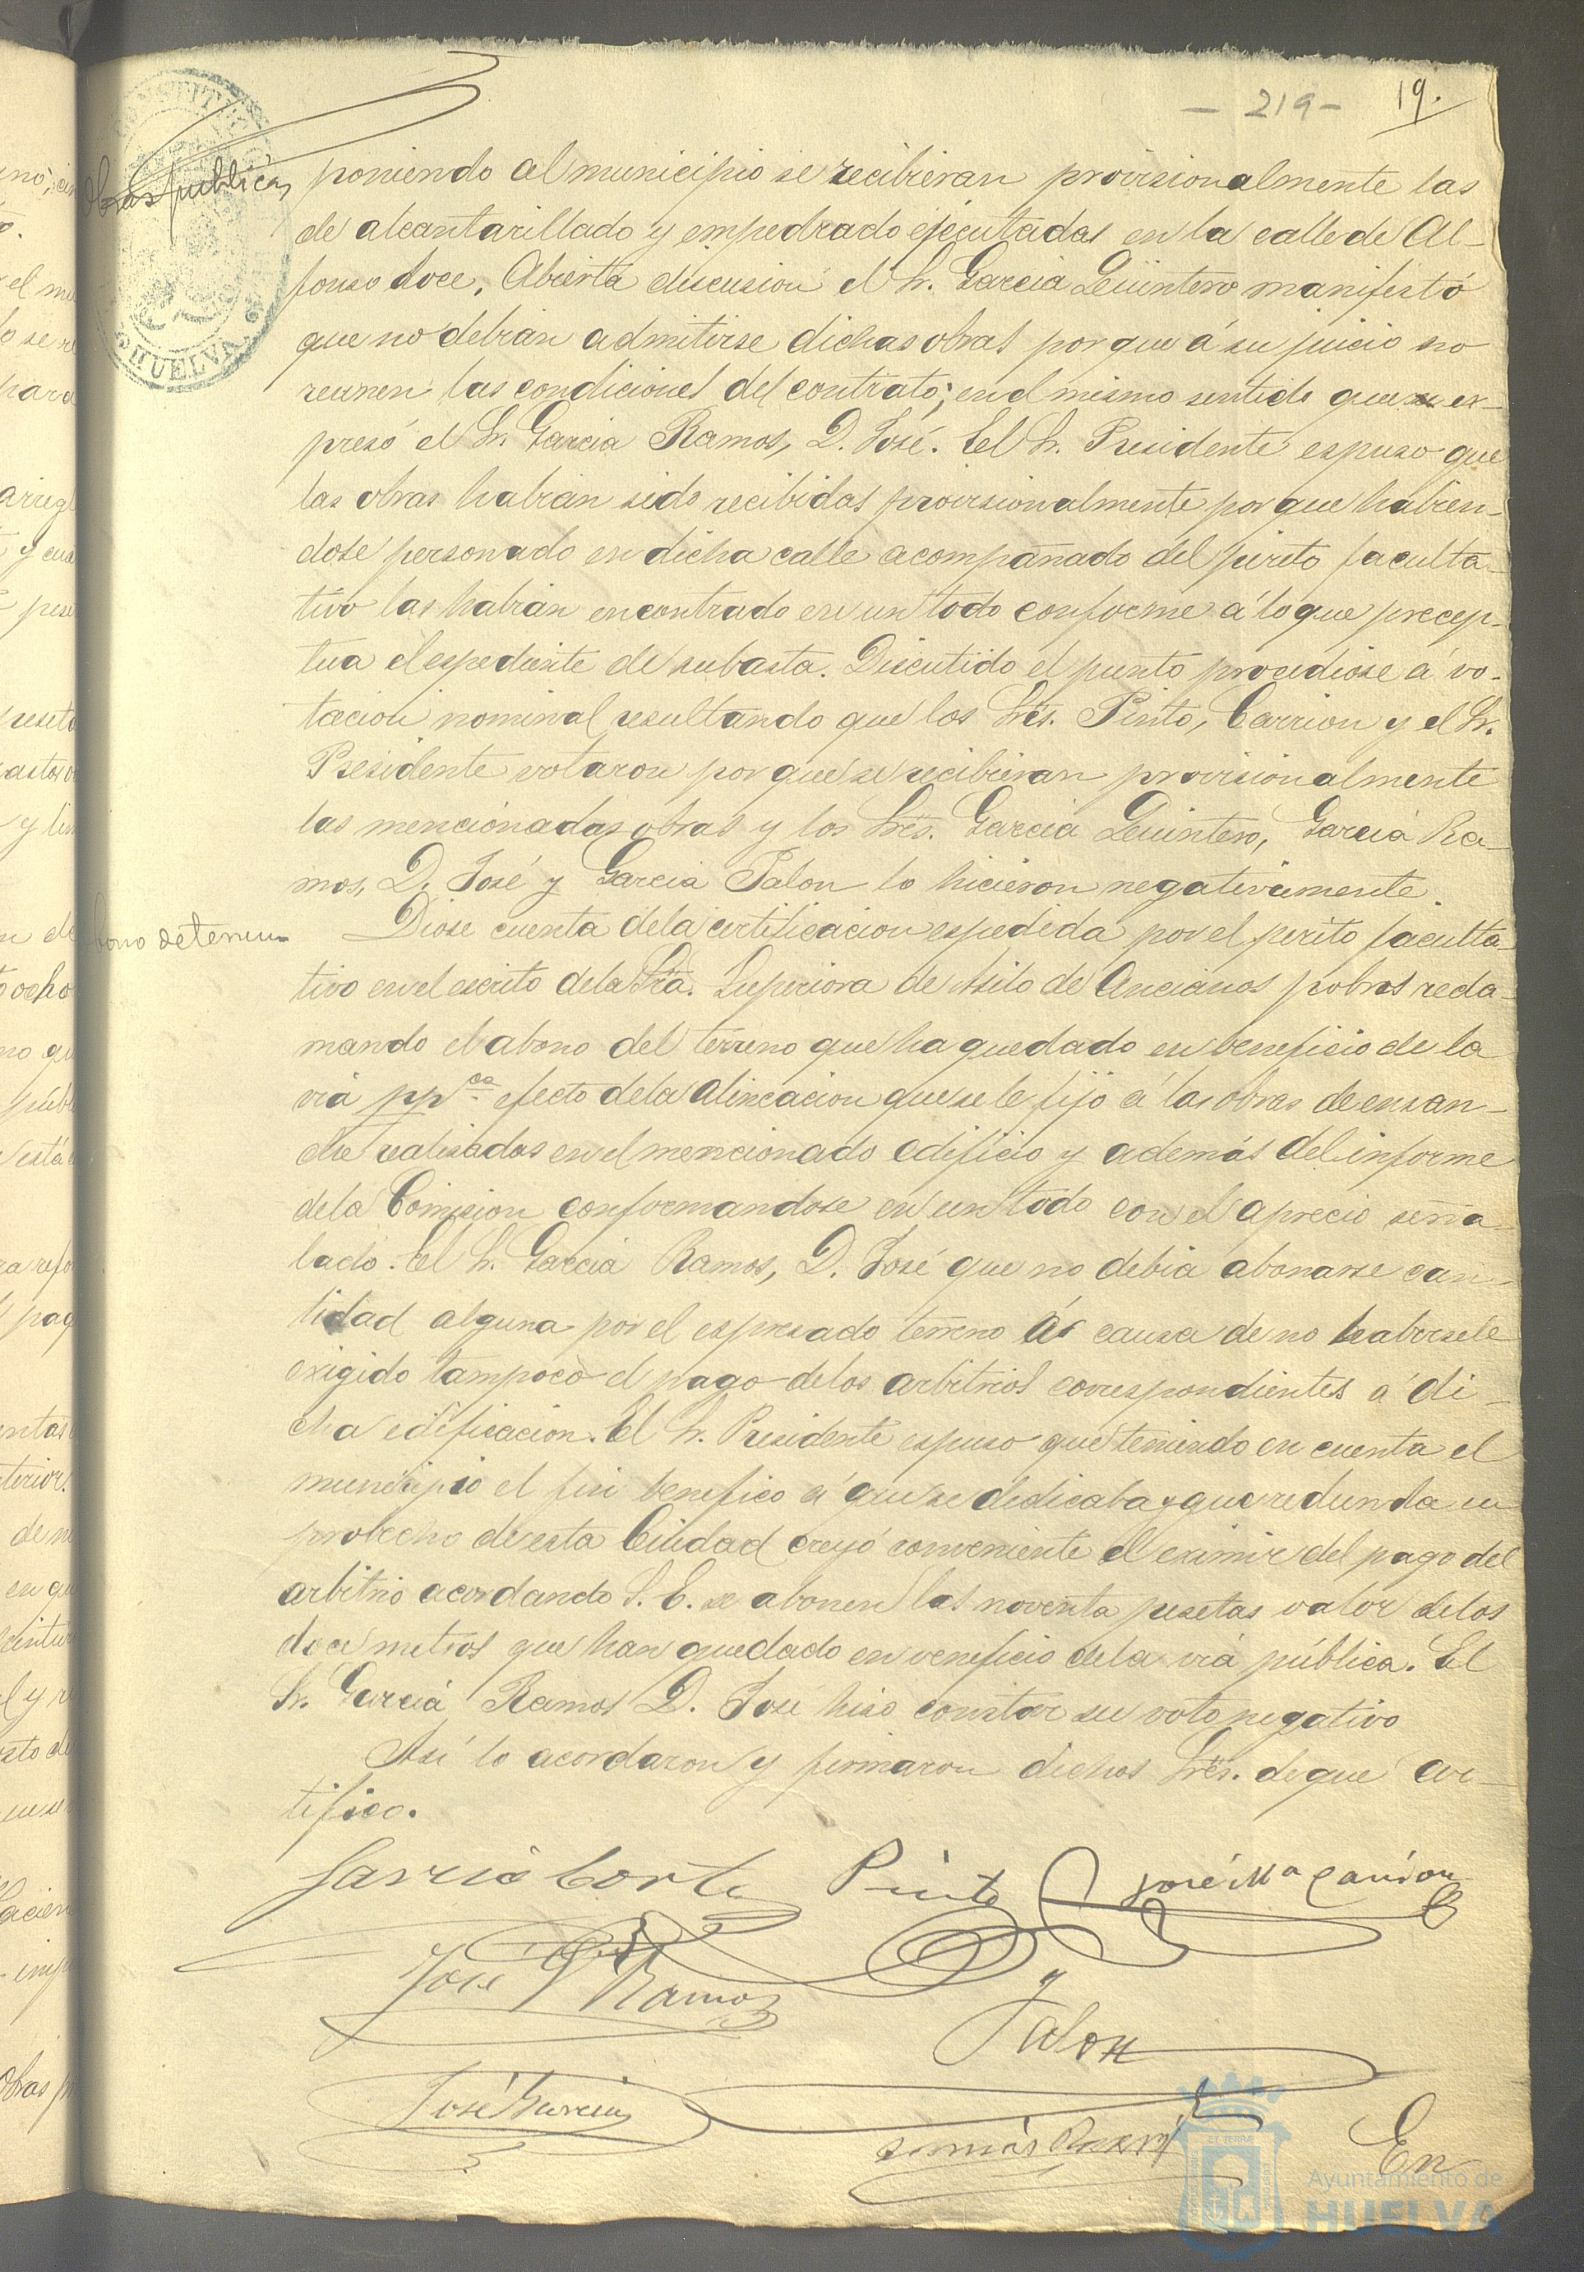 - 219 - 19.
Obras publicas
poniendo al municipio se recibieran provisionalmente las
de alcantarillado y empedrado ejecutadas en la calle de Al-
fonso doce. Abierta discusion el Sr. Garcia Quintero manifestó
que no debian admitirse dichas obras por que á su juicio no
reunen las condiciones del contrato; en el mismo sentido que se ex-
presó el Sr. Garcia Ramos, D. José. El Sr. Presidente espuso que
las obras habian sido recibidas provisionalmente por que habien-
dose personado en dicha calle acompañado del perito faculta-
tivo las habian encontrado en un todo conforme á lo que precep-
tua el espediente de subasta. Discutido el punto procediose á vo-
tacion nominal resultando que los Sres. Pinto, Carrion y el Sr.
Presidente votaron por que se recibieran provisionalmente
las mencionadas obras y los Sres. Garcia Quintero, Garcia Ra-
mos, D. José y Garcia Jalon lo hicieron negativamente.
bono de terreno
Diose cuenta de la certificacion espedida por el perito faculta-
tivo en el escrito de la Sra. Superiora de Asilo de Ancianos pobres recla-
mando el abono del terreno que ha quedado en beneficio de la
via ppca efecto de la alineacion que se le fijo á las obras de ensan-
che realizadas en el mencionado edificio y además del informe
de la Comision conformandose en un todo con el aprecio seña-
lado. El Sr. Garcia Ramos, D. José que no debia abonarse can-
tidad alguna por el espresado terreno á causa de no habersele
exigido tampoco el pago de los arbitrios correspondientes á di-
cha edificacion. El Sr. Presidente espuso que teniendo en cuenta el
municipio el fin benefico á que se dedicaba y que redunda en
probecho de esta Ciudad creyó conveniente el eximir del pago del
arbitrio acordando S. E. se abonen las noventa pesetas valor de los
doce metros que han quedado en veneficio de la via pública. El
Sr. Garcia Ramos D. Jose hizo constar su voto negativo
Así lo acordaron y firmaron dichos Sres. de que cer-
tifico.
Garcia Cortes Pinto José Mª Carrion
Jose G Ramos
Jalon
José Garcia
Tomás
En
CONSTITUC
HUELVA
Ayuntamiento de
HUELVA